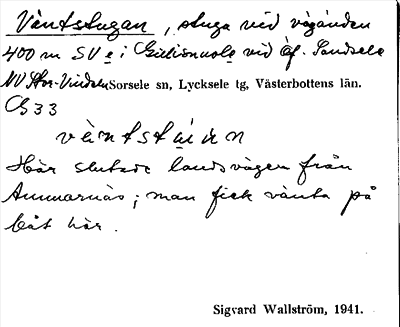 Väntstugan, stuga vid vägänden
400 m SV e i vid älf. Sandsele
NV Stor- Sorsele sn, Lycksele tg, Västerbottens län.
C533
väntstúun
Här slutade landsvägen från
Ammarnäs; man fick vänta på
båt här.
Sigvard Wallström, 1941.